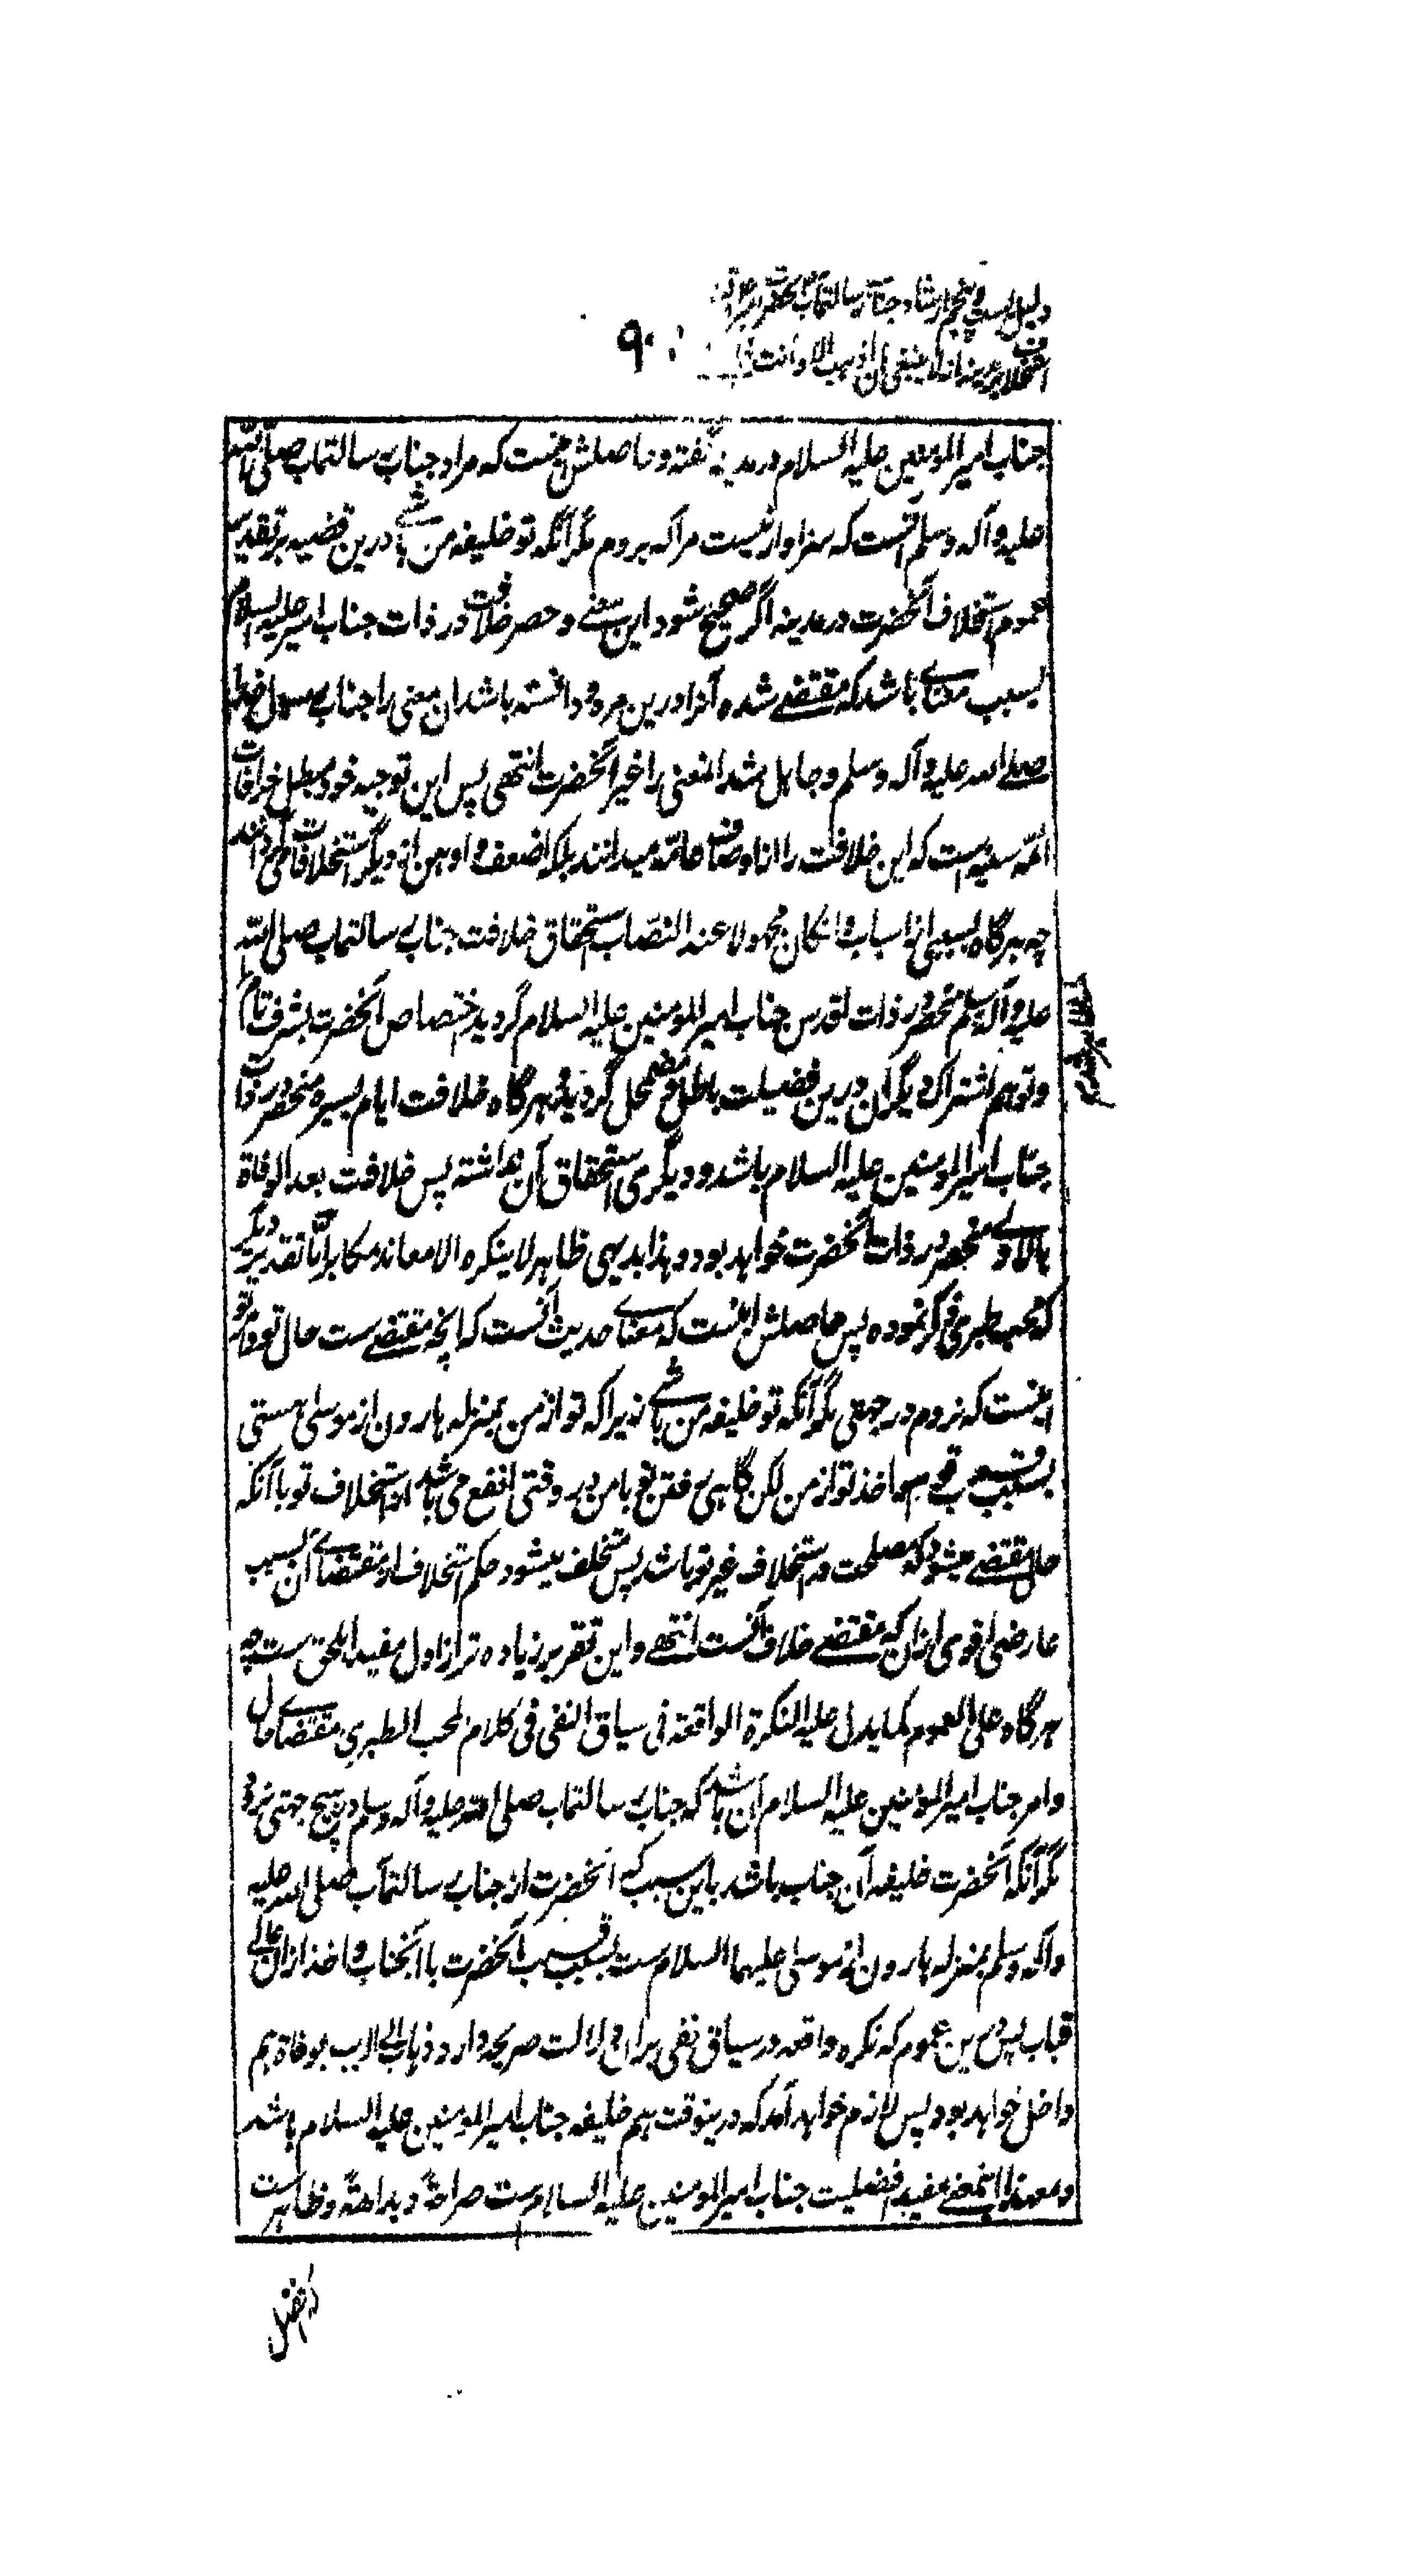 دلیل بست و پنجم ارشاد جناب رسالتمآب بحضرت امیر در
استخلاف مدینه انه لا ینبغی ان اذهب الا و انت
۹۰
جناب امیر المومنین علیه السلام در مدینه گفته و حاصلش اینست که مراد جناب رسالتمآب صلی الله
علیه و آله و سلم آنست که سزاوار نیست مرا که بروم مگر آنکه تو خلیفه من باشے درین قضیه بر تقدیر
عموم استخلاف آنحضرت در مدینه اگر صحیح شود این معنے و حصر خلافت در ذات جناب امیر علیه السلام
بسبب معنایے باشد که مقتضے شده آنرا درین مره و دانسته باشد ان معنی را جناب رسول خدا
صلے الله علیه و آله و سلم و جاہل شد المعنی را غیر آنحضرت انتهی پس این توجیه خود مبطل خرافات
ائمه سنیه است که این خلافت را از اوصاف عامّه میدانند بلکه اضعف و اوهن از دیگر استخلافات می‌دانند
چه هرگاه بسببی از اسباب و ان کان مجهولا عند النصّاب استحقاق خلافت جناب رسالتمآب صلی الله
علیه و آله و سلم منحصر در ذات اقدس جناب امیر المومنین علیه السلام گردید اختصاص آنحضرت بشرف تام
و توهم اشتراک دیگران درین فضیلت باطل و مضمحل گردید و هرگاه خلافت ایام یسیره منحصر در ذات
جناب امیر المومنین علیه السلام باشد و دیگری استحقاق آن نداشته پس خلافت بعد الوفاة
بالاولے منحصر در ذات آنحضرت خواهد بود و هذا بدیهی ظاهر لا ینکره الا معاند مکابر امّا تقدیر دیگر
که محب طبری ذکر نموده پس حاصلش اینست که معناے حدیث آنست که آنچه مقتضے ست حال تو و امر تو
اینست که نروم در جهتی مگر آنکه تو خلیفه من باشے زیرا که تو از من بمنزله هارون از موسی هستی
بسبب قرب تو و اخذ تو از من لکن گاهی رفتن تو با من در وقتی انفع می باشد از استخلاف تو یا آنکه
حال مقتضے میشود که مصلحت در استخلاف غیر تو باشد پس متخلف میشود حکم استخلاف از مقتضاے آن بسبب
عارضی اقوی ازان که مقتضے خلاف آنست انتهے و این تقریر زیاده تر از اول مفید اهل حق ست چه
هرگاه علی العموم کما یدل علیه النکرة الواقعة فی سیاق النفی فی کلام المحب الطبری مقتضاے حال
و امر جناب امیر المومنین علیه السلام آن باشد که جناب رسالتمآب صلی الله علیه و آله و سلم در هیچ جهتی نرود
مگر آنکه آنحضرت خلیفه آن جناب باشد باین سبب که آنحضرت از جناب رسالتمآب صلی الله علیه
و آله و سلم بمنزله هارون از موسی علیهما السلام ست بسبب قرب آنحضرت با آنجناب و اخذ ازان عالے
قباب پس درین عموم که نکره واقعه در سیاق نفی بران دلالت صریحه دارد ذهاب الی الرب بوفاة هم
داخل خواهد بود پس لازم خواهد آمد که درینوقت هم خلیفه جناب امیر المومنین علیه السلام باشد
و معهذا اینمعنے مفید افضلیت جناب امیر المومنین علیه السلام ست صراحةً و بداهةً و ظاهرست